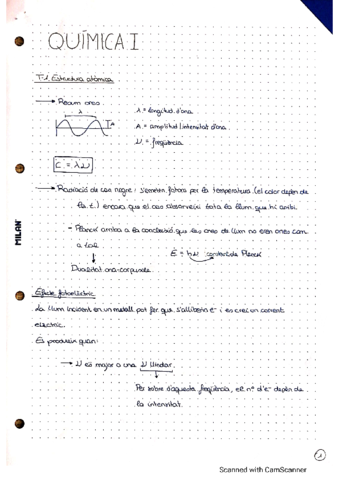 QUÍMICA I
T.1. Estructura atòmica
→ Recum ones
λ
A
λ = longitud d'ona
A = amplitud / intensitat d'ona
ν = freqüència
C = λν
→ Radiació de cos negre: s'emeten fotons per la temperatura (el color depèn de
la t.) encara que el cos absorveixi tota la llum que hi arribi.
- Planck arriba a la conclusió que les ones de llum no eren ones com
a tal.
E = hν constant de Planck
Dualitat ona-corpuscle
Efecte fotoelèctric
La llum incident en un metall pot fer que s'alliberin e⁻ i es creï un corrent
elèctric.
Es produeix quan:
→ ν és major a una ν llindar.
Per sobre d'aquesta freqüència, el nº d'e⁻ depèn de
la intensitat.
MILAN
1
Scanned with CamScanner